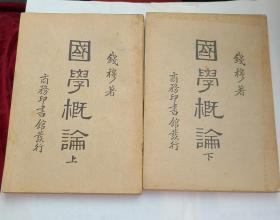 錢穆著
國學概論
上
商務印書館發行
錢穆著
國學概論
下
商務印書館發行